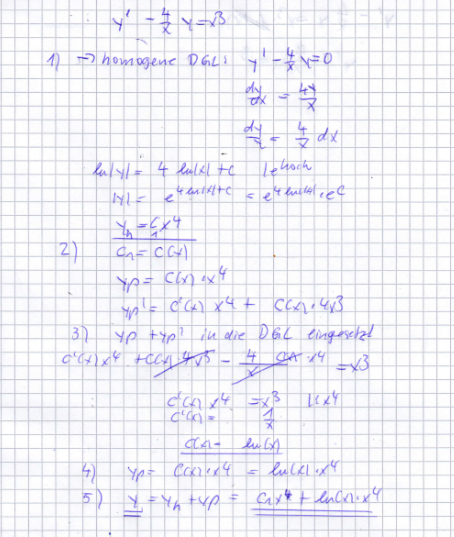 y' - 4/x y = x3
1) → homogene DGL: y' - 4/x y = 0
dy/dx = 4y/x
dy/y = 4/x dx
ln|y| = 4 ln|x| + c | e hoch
|y| = e^(4 ln|x| + c) = e^(4 ln|x|) · e^c
yh = C1 x^4
2) C1 = C(x)
yp = C(x) · x^4
yp' = C'(x) x^4 + C(x) · 4x3
3) yp + yp' in die DGL eingesetzt
C'(x) x^4 + C(x) 4x3 - 4/x C(x) · x^4 = x3
C'(x) x^4 = x3 |: x^4
C'(x) = 1/x
C(x) = ln(x)
4) yp = C(x) · x^4 = ln(x) · x^4
5) y = yh + yp = C1 x^4 + ln(x) · x^4